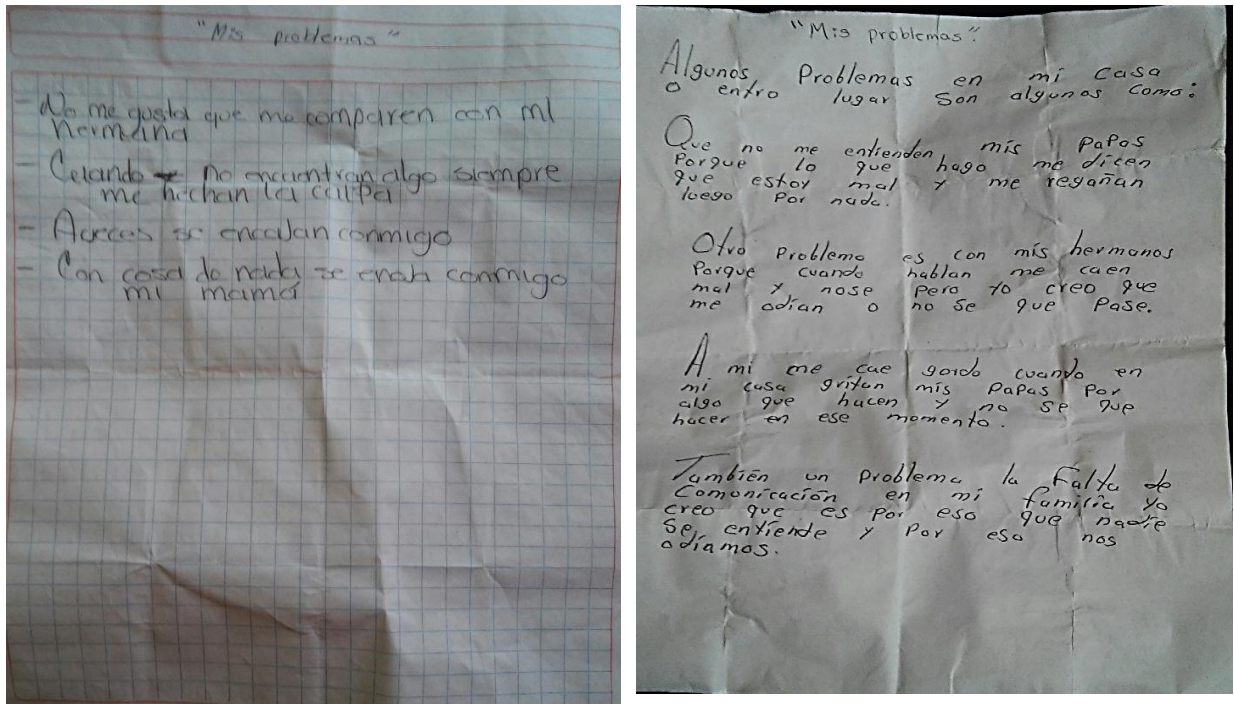 "Mis problemas"
- No me gusta que me comparen con mi
hermana
- Cuando no encuentran algo siempre
me hechan la culpa
- Aveces se encajan conmigo
- Con cosa de nada se enoja conmigo
mi mamá
"Mis problemas".
Algunos Problemas en mi casa
o entro lugar son algunos como:
Que no me entienden mis papas
Porque lo que hago me dicen
que estoy mal y me regañan
luego por nada.
Otro problema es con mis hermanos
Porque cuando hablan me caen
mal y nose pero yo creo que
me odian o no se que pase.
A mi me cae gordo cuando en
mi casa gritan mis papas por
algo que hacen y no se que
hacer en ese momento.
También un problema la falta de
comunicación en mi familia yo
creo que es por eso que nadie
se entiende y por eso nos
odiamos.